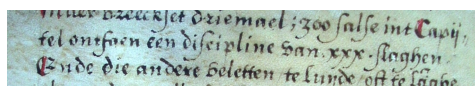 breecket driemael; zoo salse int Capij,
tel ontfaen een discipline van .xxx. slaghen
Ende die andere beletten te lunde oft te laghe